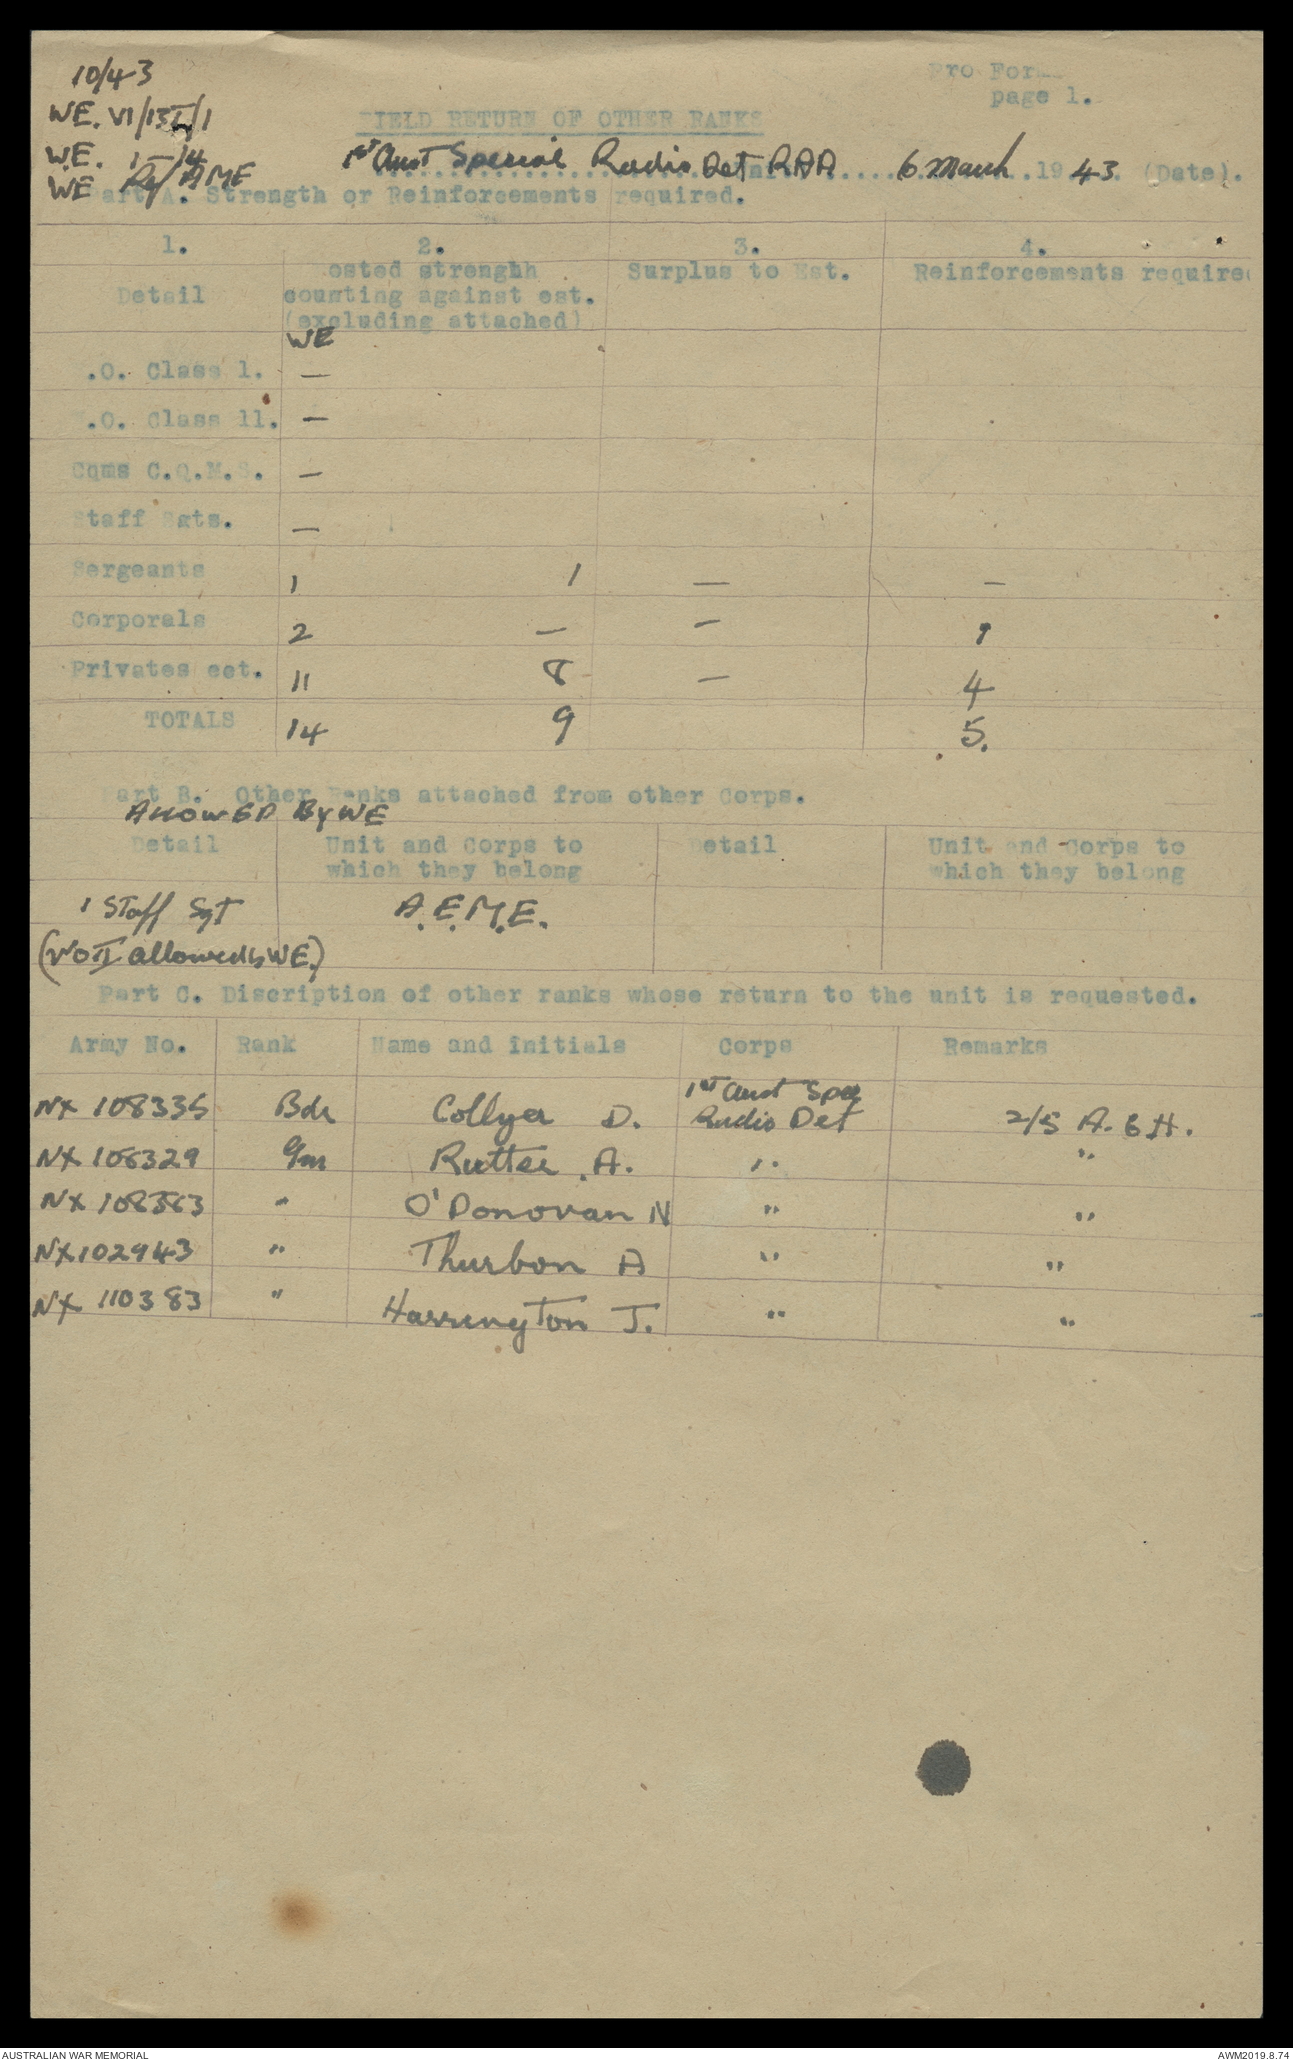 10/43
Pro For
page 1.
WE. VI/13I/1
FIELD RETURN OF OTHER RANKS
WE. 1-14
WE AEME
1st Aust Special Radio Det RAA 6 March 1943 (Date).
Part A. Strength or Reinforcements required.
1. 2. 3. 4.
Detail
osted strenghh
counting against est.
(excluding attached)
Surplus to Est.
Reinforcements require
WE
.O. Class 1. —
.O. Class 11. —
Cqms C.Q.M.S. —
Staff Sgts. —
Sergeants 1 1 — —
Corporals 2 — — 1
Privates eet. 11 8 — 4
TOTALS 14 9 5.
Part B. Other Ranks attached from other Corps.
Allowed By WE
Detail
Unit and Corps to
which they belong
Detail
Unit and Corps to
which they belong
1 Staff Sgt A.E.M.E.
(NOT allowed by WE.)
Part C. Discription of other ranks whose return to the unit is requested.
Army No. Rank Name and initials Corps Remarks
NX 108335 Bdr Collyer D. 1st Aust Spec Radio Det 2/5 A.G.H.
NX 108329 Gnr Rutter A. " "
NX 108363 " O'Donovan N " "
NX102943 " Thurbon A " "
NX 110383 " Harrington J. " "
AUSTRALIAN WAR MEMORIAL
AWM2019.8.74